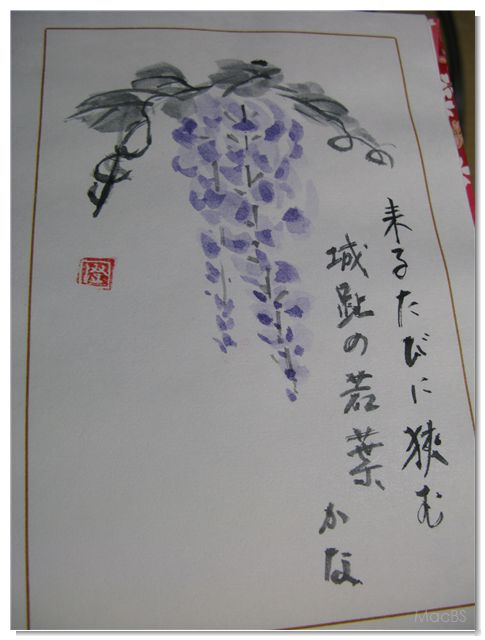 来るたびに狭む
城趾の若葉かな
MacBS